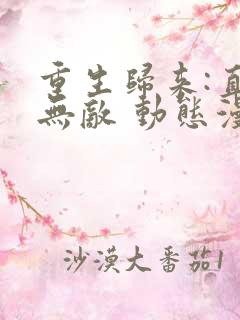 重生歸來:直
無敵 動態漫
沙漠大番茄1